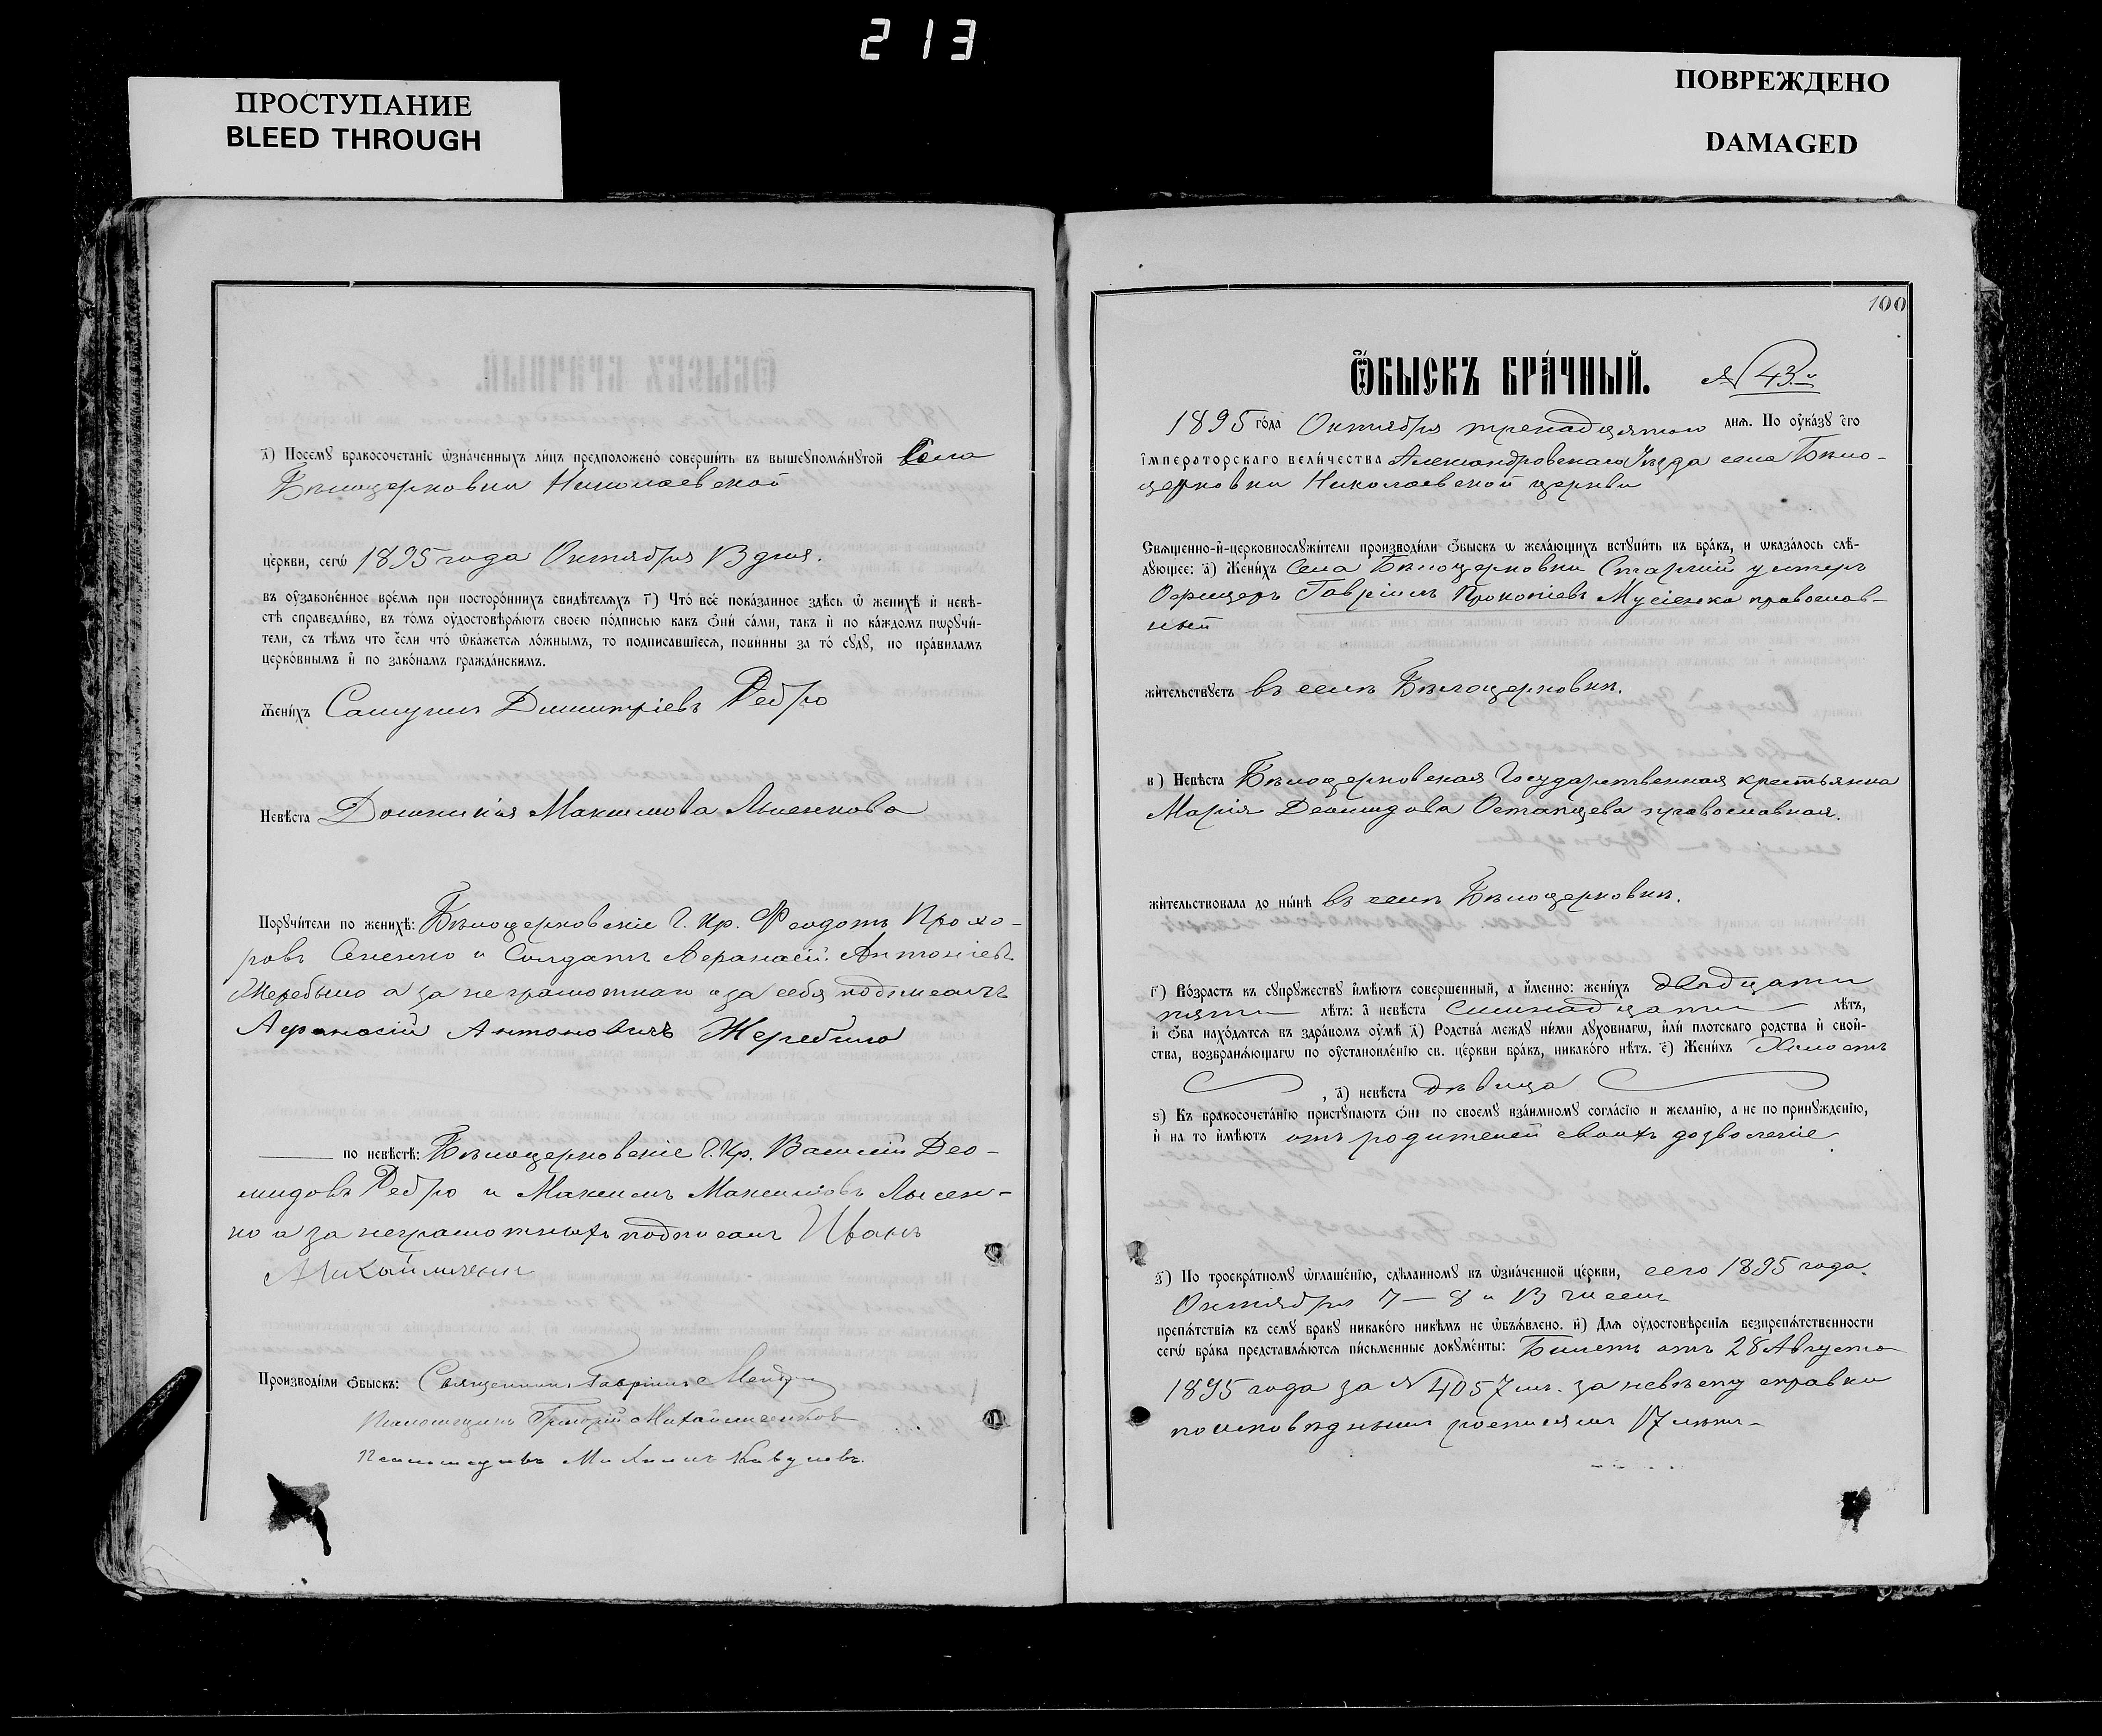 213
ПРОСТУПАНИЕ
BLEED THROUGH
ПОВРЕЖДЕНО
DAMAGED
д) Посему бракосочетаніе означенныхъ лицъ предположено совершить въ вышеупомянутой Села
Бѣлоцерковки Николаевской
церкви, сего 1895 года Октября 13 дня.
въ узаконенное время при постороннихъ свидѣтеляхъ г) Что все показанное здѣсь о женихѣ и невѣ-
стѣ справедливо, въ томъ удостовѣряютъ своею подписью какъ они сами, такъ и по каждомъ поручи-
тели, съ тѣмъ что если что окажется ложнымъ, то подписавшіеся, повинны за то суду, по правиламъ
церковнымъ и по законамъ гражданскимъ.
Женихъ Самуилъ Димитріевъ Редро
Невѣста Домникія Максимова Лысенкова
Поручители по женихѣ: Бѣлоцерковскіе Г. Кр. Феодотъ Прохо-
ровъ Сененко и Солдатъ Афанасій Антоніевъ
Жеребыло а за неграмотнаго и за себя подписалъ
Афанасій Антоновичъ Жеребило
по невѣстѣ: Бѣлоцерковскіе Г. Кр. Василій Део-
мидовъ Редро и Максимъ Максимовъ Лысен-
ко а за неграмотныхъ подписалъ Иванъ
Производили обыскъ: Священникъ Гавріилъ
Псаломщикъ Григорій Михайличенков
Псаломщикъ Михаилъ
100
Обыскъ брачный. № 43й
1895 года Октября тринадцатого дня. По указу его
императорскаго величества Александровскаго Уѣзда села Бѣло-
церковки Николаевской церкви
Священно-и-церковнослужители производили обыскъ о желающихъ вступить въ бракъ, и оказалось слѣ-
дующее: а) Женихъ Села Бѣлоцерковки Старшій унтеръ
Офицеръ Гавріилъ Прокопіевъ Мусіенко православ-
ный
жительствуетъ въ селѣ Бѣлоцерковкѣ.
в) Невѣста Бѣлоцерковская Государственная крестьянка
Марія Деомидова Остапцева православная.
жительствовала до нынѣ въ селѣ Бѣлоцерковкѣ.
г) Возрастъ къ супружеству имѣютъ совершенный, а именно: женихъ двадцати
пяти лѣтъ: а невѣста Семнадцати лѣтъ,
и оба находятся въ здравомъ умѣ д) Родства между ними духовнаго, или плотскаго родства и свой-
ства, возбраняющаго по установленію св. церкви бракъ, никакого нѣтъ. е) Женихъ Холостъ
, а) невѣста дѣвица
ѕ) Къ бракосочетанію приступаютъ они по своему взаимному согласію и желанію, а не по принужденію,
и на то имѣютъ отъ родителей своихъ дозволеніе.
з) По троекратному оглашенію, сдѣланному въ означенной церкви, сего 1895 года.
Октября 7 — 8 и 13 чиселъ
препятствія къ сему браку никакого никѣмъ не объявлено. и) Для удостовѣренія безпрепятственности
сего брака представляются письменные документы: Билетъ отъ 28 Августа
1895 года за № 4057 мъ. за невѣсту справки
по исповѣднымъ росписямъ 17 лѣтъ